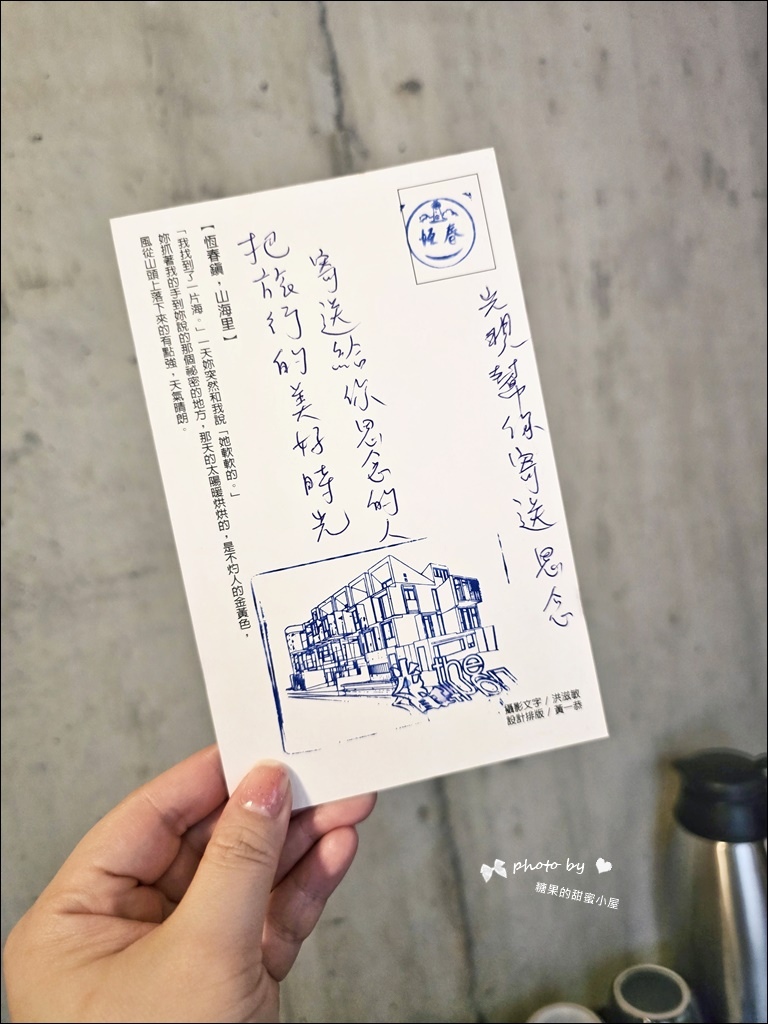 恆春
光現幫你寄送思念
寄送給你思念的人
把旅行的美好時光
【恆春鎮，山海里】
「我找到了一片海。」一天妳突然和我說「她軟軟的。」
妳抓著我的手到妳說的那個祕密的地方，那天的太陽暖烘烘的，是不灼人的金黃色，
風從山頭上落下來的有點強，天氣晴朗。
the
攝影文字 / 洪滋敏
設計排版 / 黃一恭
photo by
糖果的甜蜜小屋